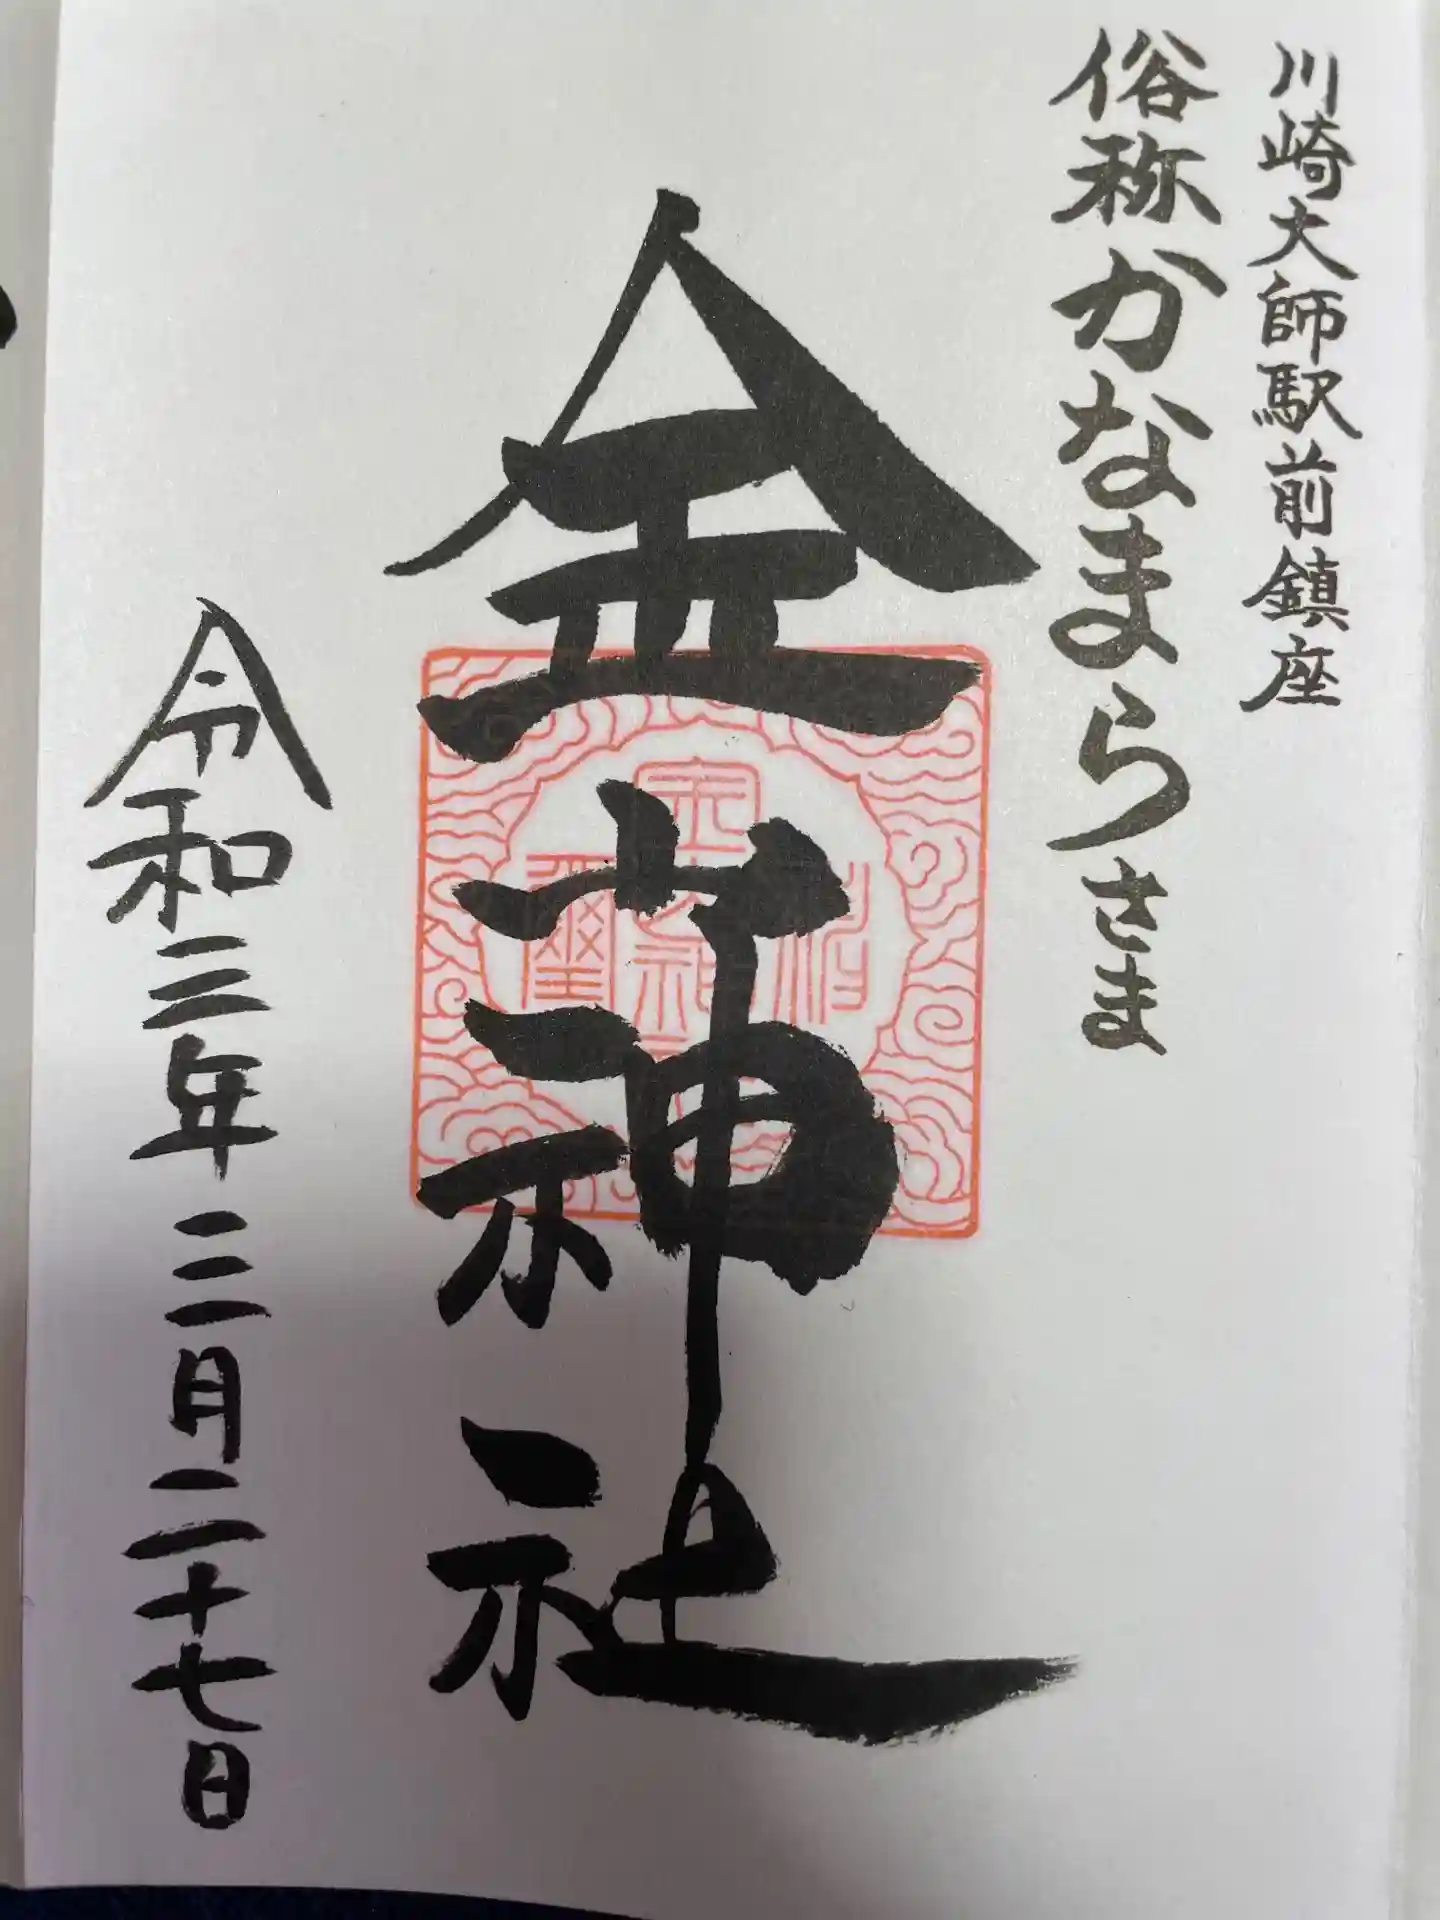 川崎大師駅前鎮座
俗称かなまらさま
金山神社
令和三年三月二十七日